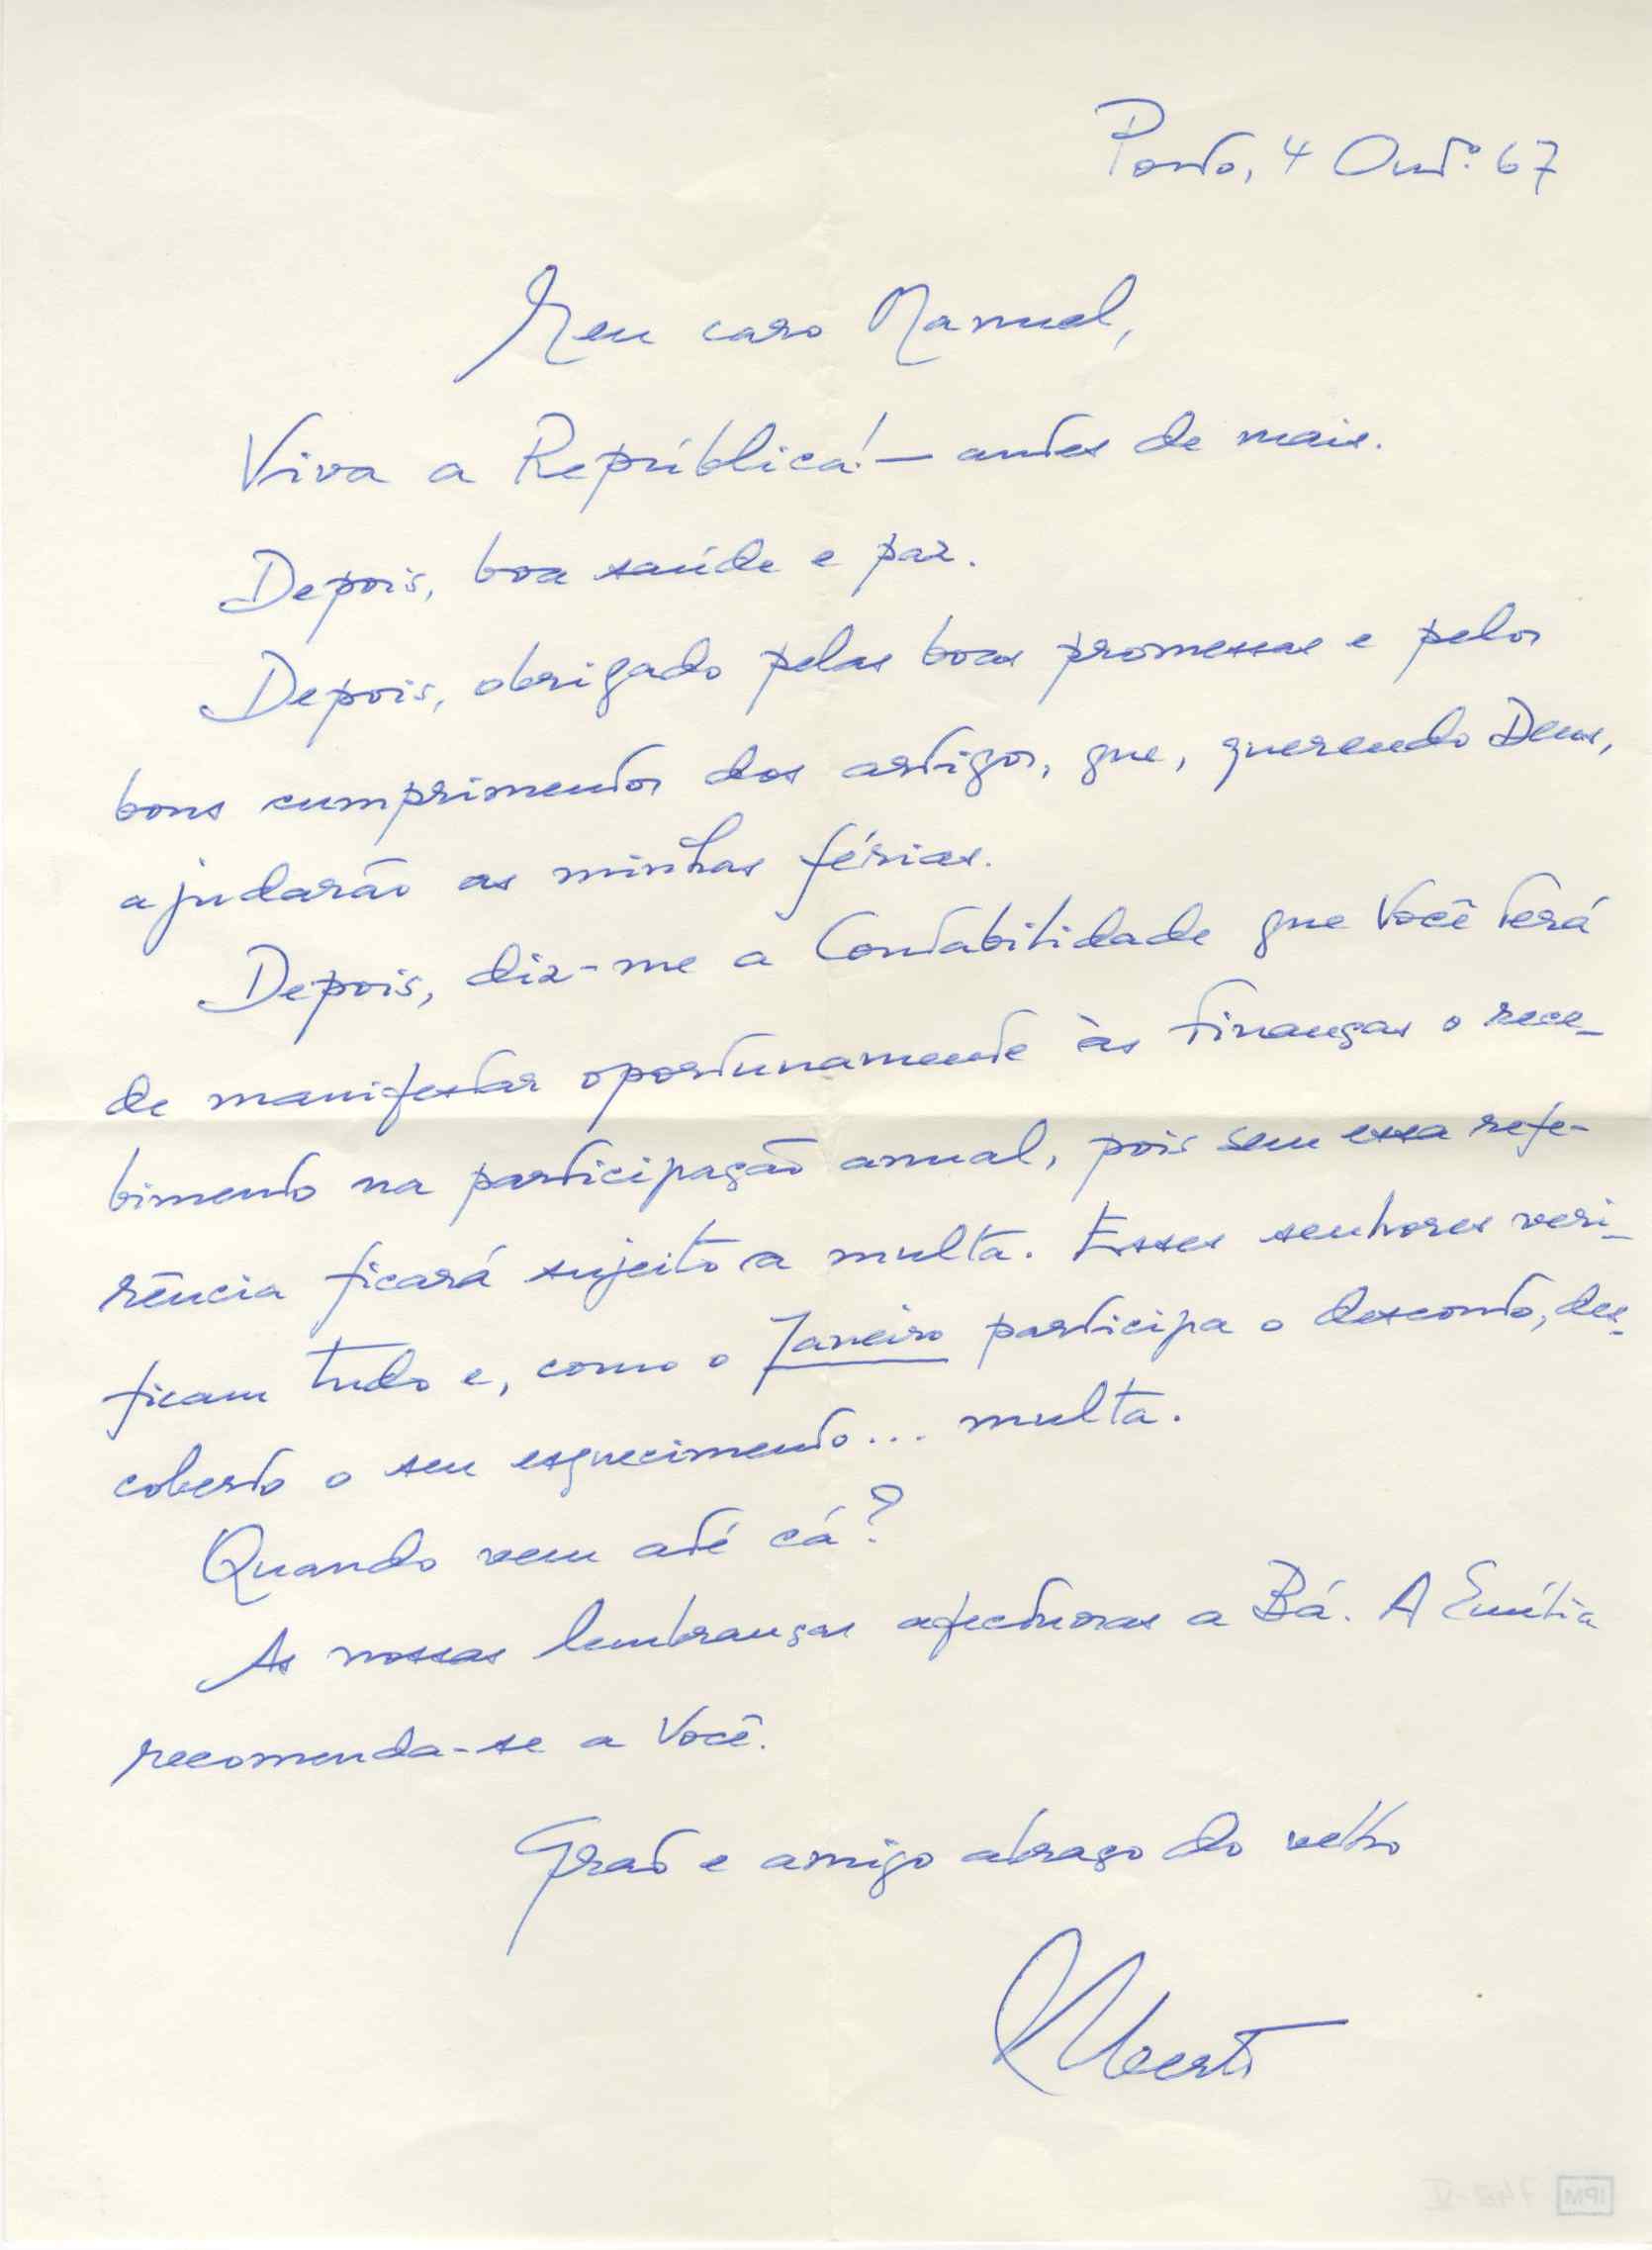 Porto, 4 Out.º 67
Meu caro Manuel,
Viva a República! — antes de mais.
Depois, boa saúde e paz.
Depois, obrigado pelas boas promessas e pelos
bons cumprimentos dos artigos, que, querendo Deus,
ajudarão as minhas férias.
Depois, diz-me a Contabilidade que Você terá
de manifestar oportunamente às Finanças o rece-
bimento na participação anual, pois sem essa refe-
rência ficará sujeito a multa. Esses senhores veri-
ficam tudo e, como o Janeiro participa o desconto, des-
coberto o seu esquecimento... multa.
Quando vem até cá?
As nossas lembranças afectuosas a Bá. A Emília
recomenda-se a Você.
Grato e amigo abraço do velho
Alberto
IPM 748-V